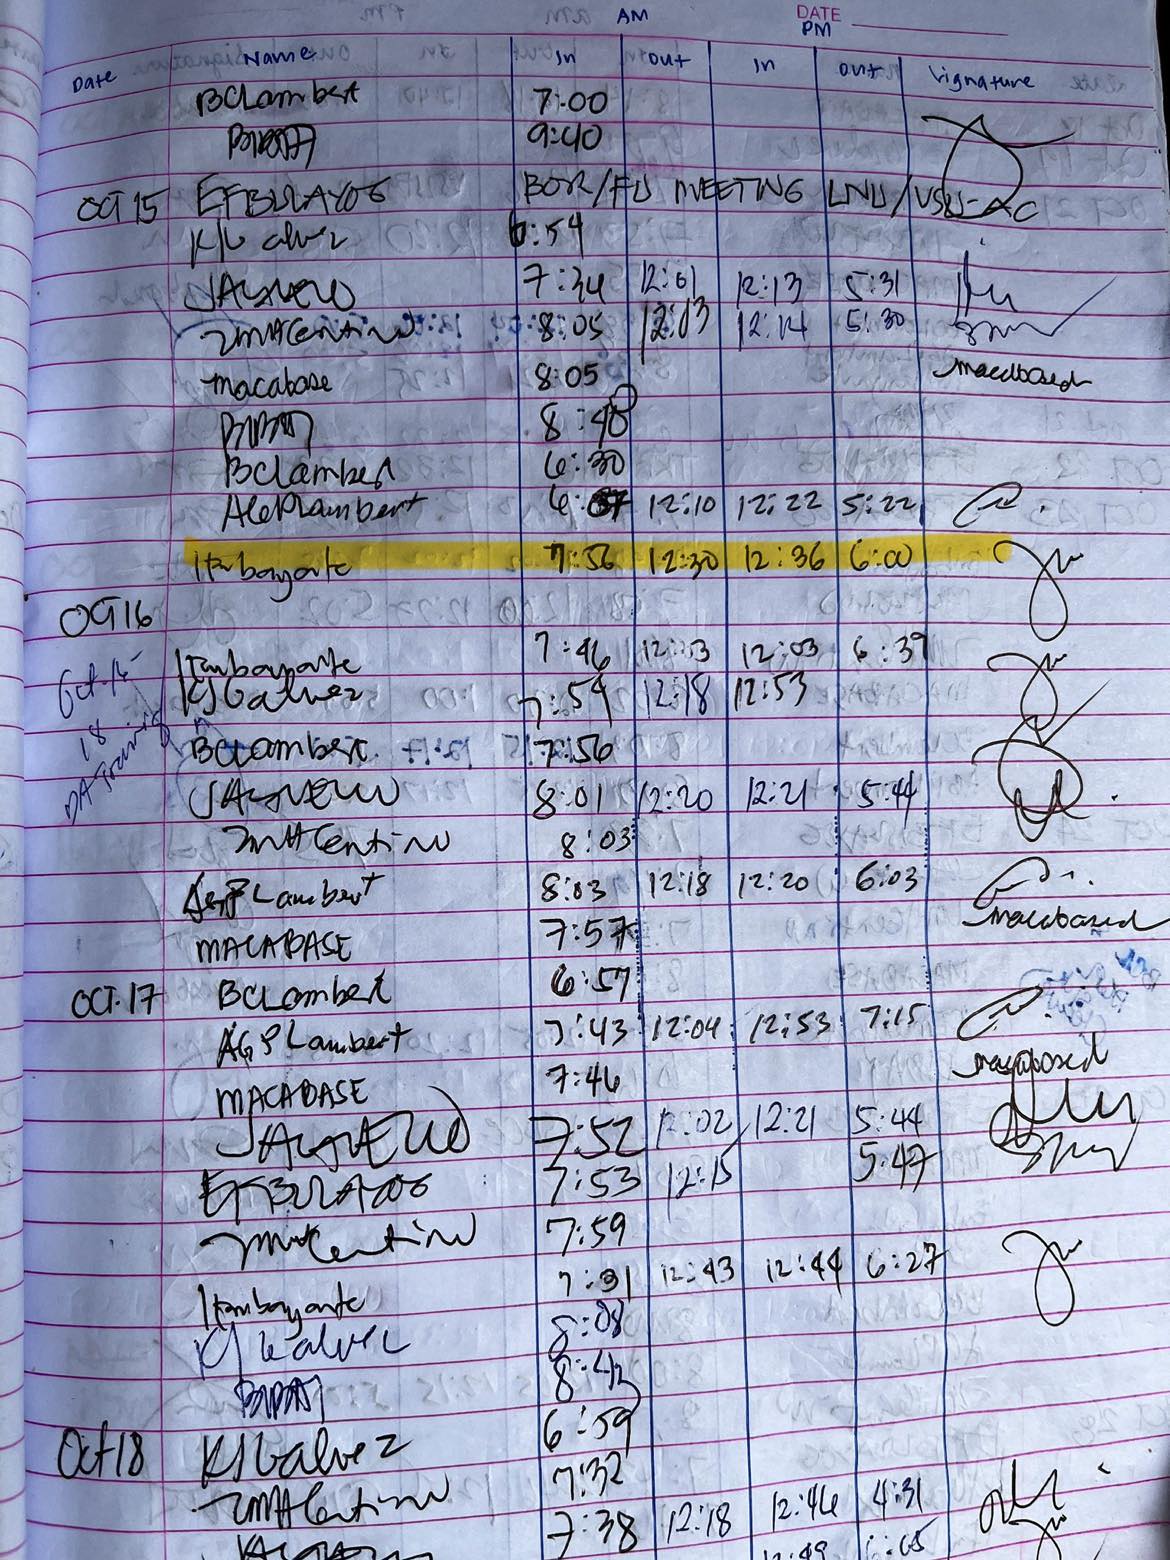 DATE
AM PM
Date Name In Out In Out Signature
BCLambert 7:00
9:40
OCT 15 EFBULAYOG BOR/FD MEETING LNU/VSU
KJGalvez 6:54
7:34 12:01 12:13 5:31
JMACentino 8:05 12:03 12:14 5:30
macabase 8:05 macabased
8:40
BCLambert 6:30
AGPLambert 6:57 12:10 12:22 5:22
Itambayante 7:56 12:30 12:36 6:00
OCT 16
Itambayante 7:46 12:03 12:03 6:39
KJGalvez 7:59 12:18 12:53
Oct. 16-
18
DA Training
BCLambert 7:56
8:01 12:20 12:21 5:44
JMACentino 8:03
AGPLambert 8:03 12:18 12:20 6:03
MACABASE 7:57 macabased
OCT. 17 BCLambert 6:57
AGPLambert 7:43 12:04 12:53 7:15
MACABASE 7:46 macabased
7:52 12:02 12:21 5:44
EFBULAYOG 7:53 12:15 5:47
JMACentino 7:59
Itambayante 7:31 12:43 12:44 6:27
KJGalvez 8:08
8:42
Oct 18 KJGalvez 6:59
JMACentino 7:32
7:38 12:18 12:46 4:31